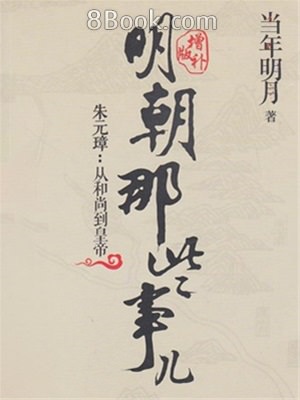 8Book.com
当年明月 著
增补版
明朝那些事儿
朱元璋：从和尚到皇帝